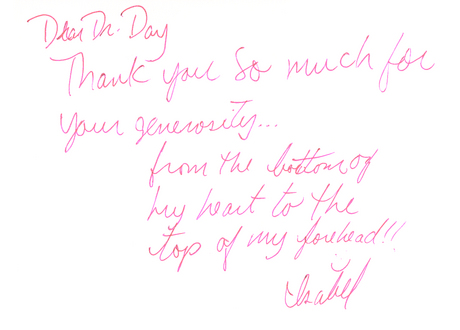 Dear Dr. Day
Thank you so much for
your generosity...
from the bottom of
my heart to the
top of my forehead!!
Isabel